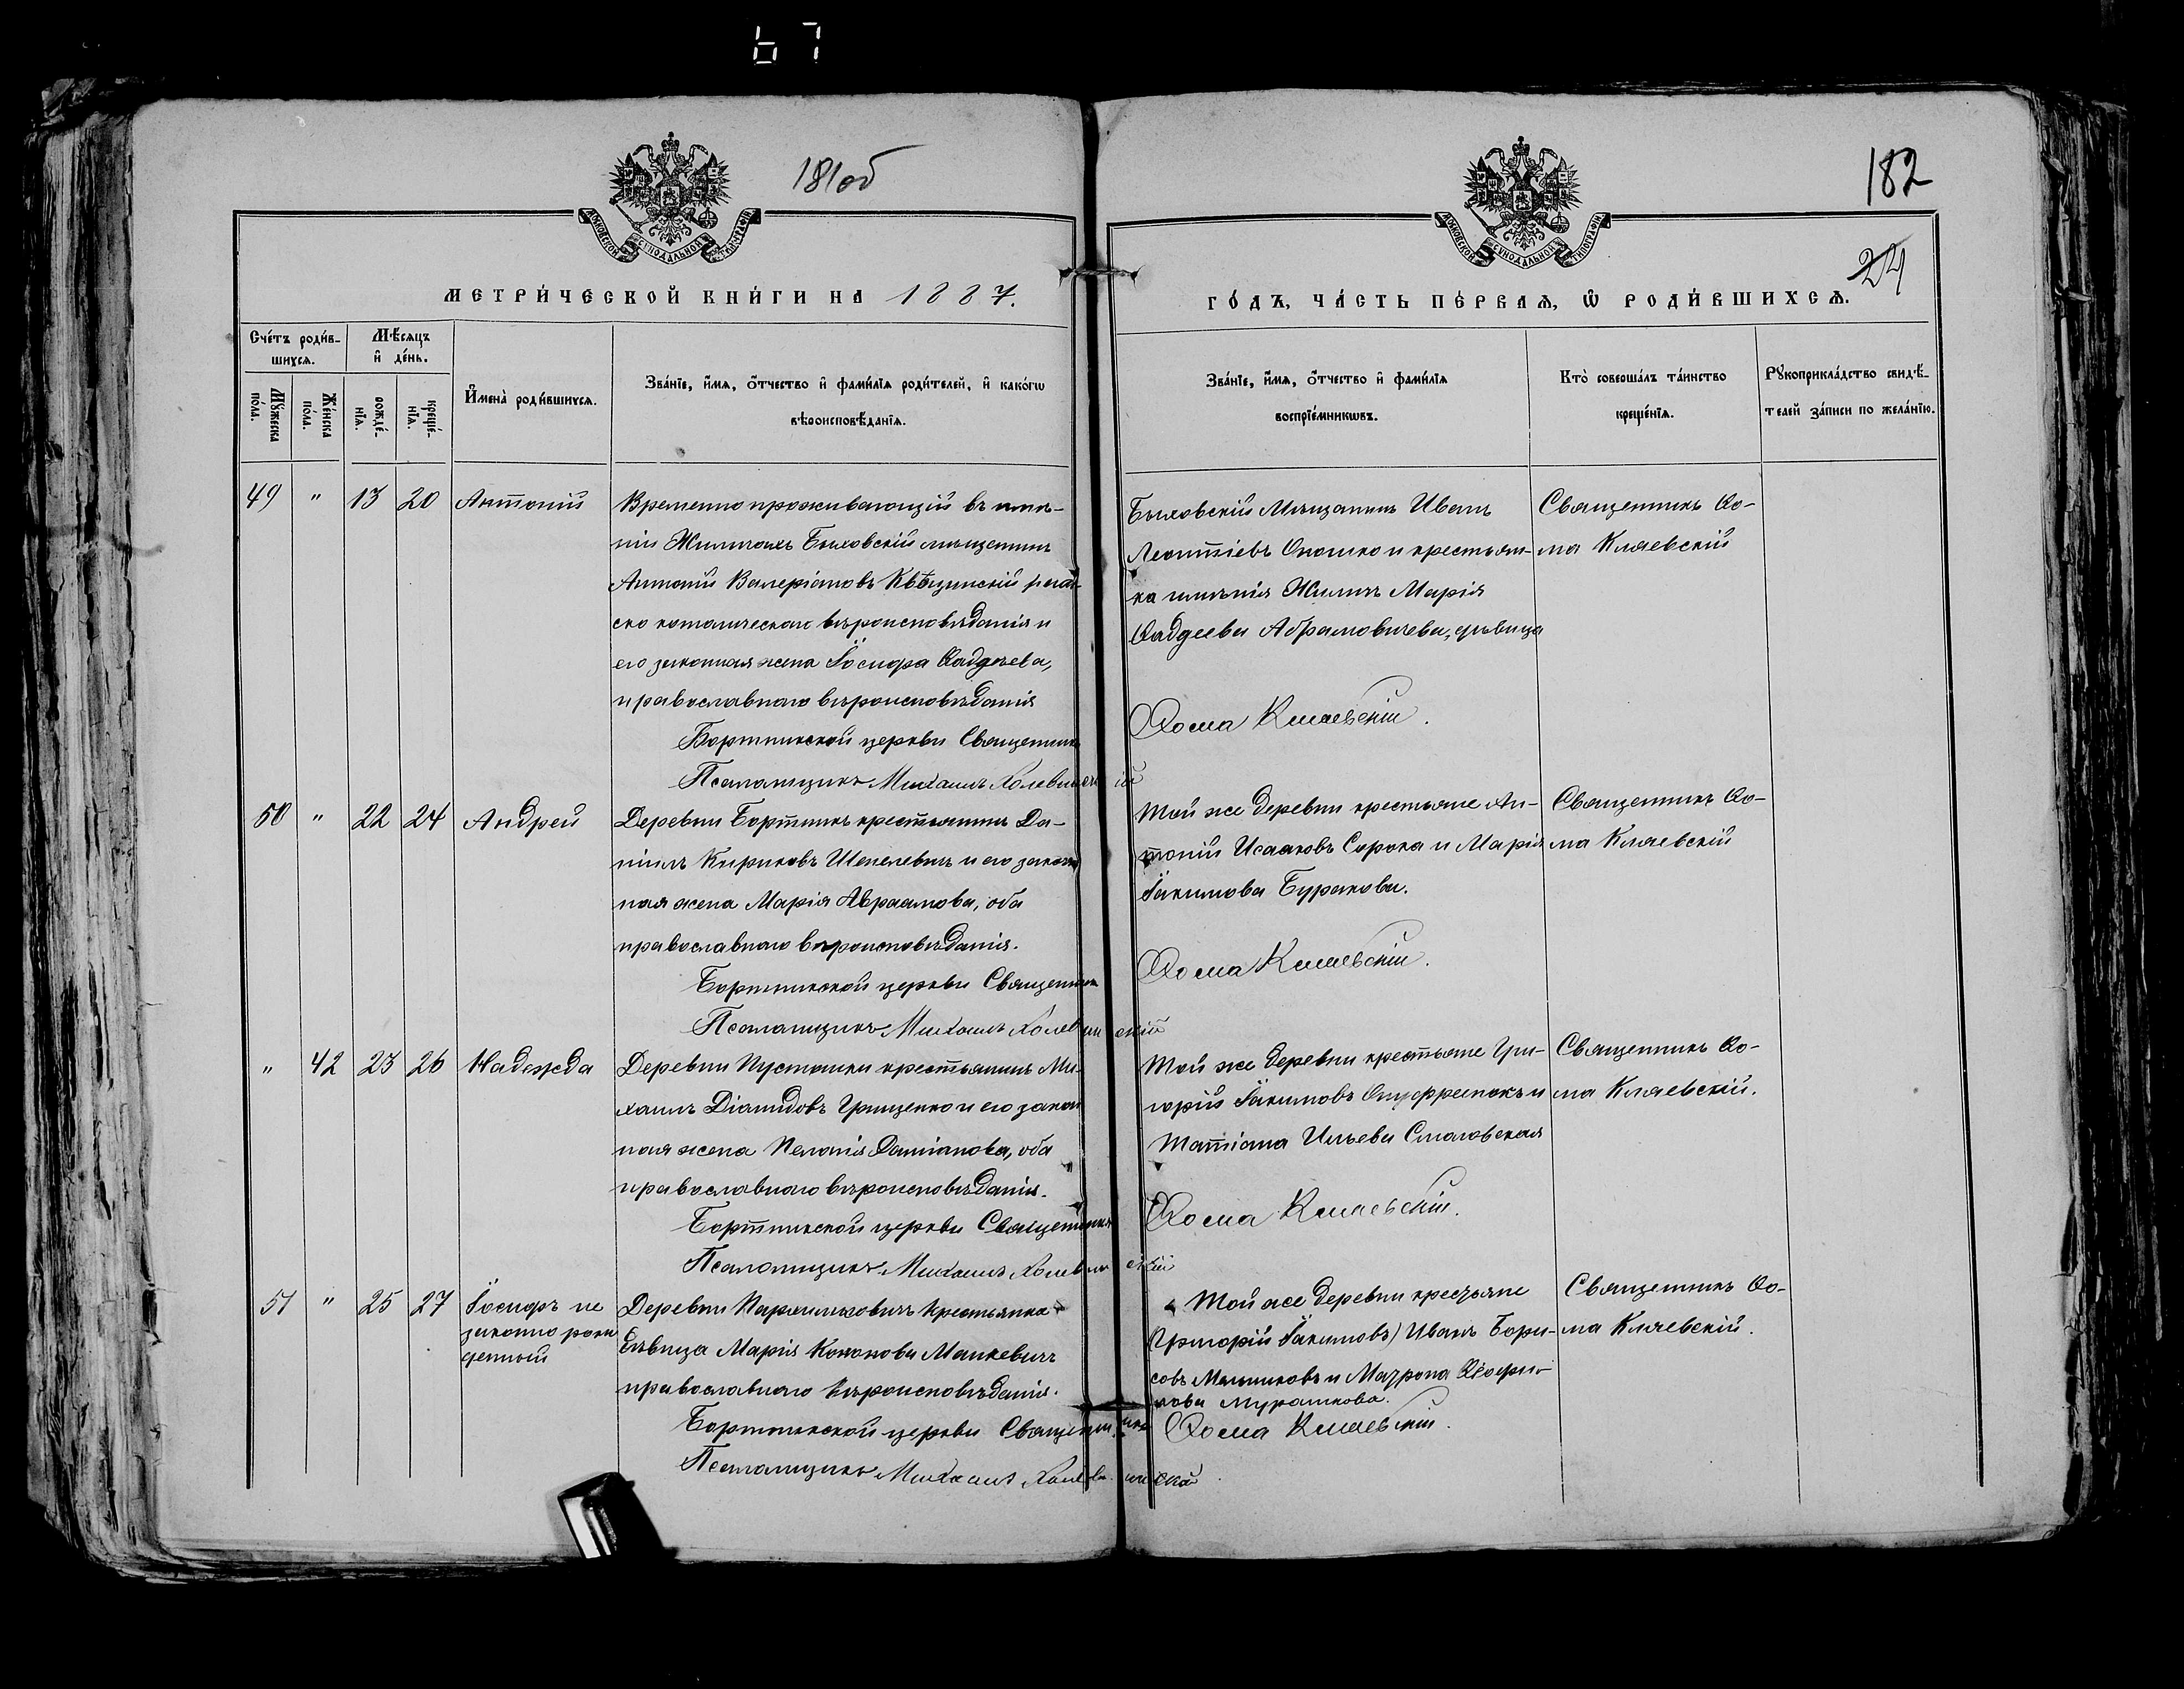 67
181об
182
24
МОСКОВСКОЙ СѴНОДАЛЬНОЙ ТИПОГРАФІИ
МОСКОВСКОЙ СѴНОДАЛЬНОЙ ТИПОГРАФІИ
МЕТРИ́ЧЕСКОЙ КНИ́ГИ НА 1887.
ГО́ДЪ, ЧА́СТЬ ПЕ́РВАЯ, Ѡ҆ РОДИ́ВШИХСЯ.
Сче́тъ роди́в-
шихся.
Мѣ́сяцъ
и҆ де́нь.
Му́жеска
по́ла.
Же́нска
по́ла.
рожде́-
нїя.
креще́-
нїя.
И҆мена̀ роди́вшихся.
Зва́нїе, и҆́мя, ѻ҆́тчество и҆ фами́лїя роди́телей, и҆ како́гѡ
вѣроисповѣ́данїя.
Зва́нїе, и҆́мя, ѻ҆́тчество и҆ фами́лїя
воспрїе́мникѡвъ.
Кто̀ соверша́лъ та́инство
креще́нїя.
Рꙋкоприкла́дство свидѣ́-
телей за́писи по жела́нїю.
49 " 13 20 Антоній
Временно проживающій въ имѣ-
ніи Жиличахъ Быховскій мѣщанинъ
Антоній Валеріановъ римо-
ско католическаго вѣроисповѣданія и
его законная жена Ѳадѣева,
православнаго вѣроисповѣданія
Бортникской церкви Священникъ
Псаломщикъ Михаилъ
Быховскій Мѣщанинъ Иванъ
Леонтіевъ и крестьян-
ка имѣнія Жиличъ Марія
Ѳадѣева Абрамовичева, дѣвица
Ѳома Кляевскій.
Священникъ Ѳо-
ма Кляевскій
50 " 22 24 Андрей
Деревни Бортникъ крестьянинъ Да-
ніилъ Кириковъ Шепелевичъ и его закон
ная жена Марія Авраамова, оба
православнаго вѣроисповѣданія.
Бортникской церкви Священникъ
Псаломщикъ Михаилъ
Той же деревни крестьяне Ан-
тоній Исааковъ Сорока и Марія
Іакимова Буракова.
Ѳома Кляевскій.
Священникъ Ѳо-
ма Кляевскій
" 42 23 26 Надежда
Деревни Пустошки крестьянинъ Ми-
хаилъ Діамидовъ Грищенко и его закон
ная жена Даміанова, оба
православнаго вѣроисповѣданія.
Бортникской церкви Священникъ
Псаломщикъ Михаилъ
Той же деревни крестьяне Гри-
горій Іакимовъ и
Татіана Ильева
Ѳома Кляевскій.
Священникъ Ѳо-
ма Кляевскій.
51 " 25 27 Іосифъ не
законно рож
денный
Деревни крестьянка
дѣвица Марія Кононова Манкевичъ
православнаго вѣроисповѣданія.
Бортникской церкви Священникъ
Псаломщикъ Михаилъ
Той же деревни крестьяне
(Григорій Іакимовъ) Иванъ Бори-
совъ Мельниковъ и Матрона Ѳеофи-
лова Мурашкова.
Ѳома Кляевскій.
Священникъ Ѳо-
ма Кляевскій.